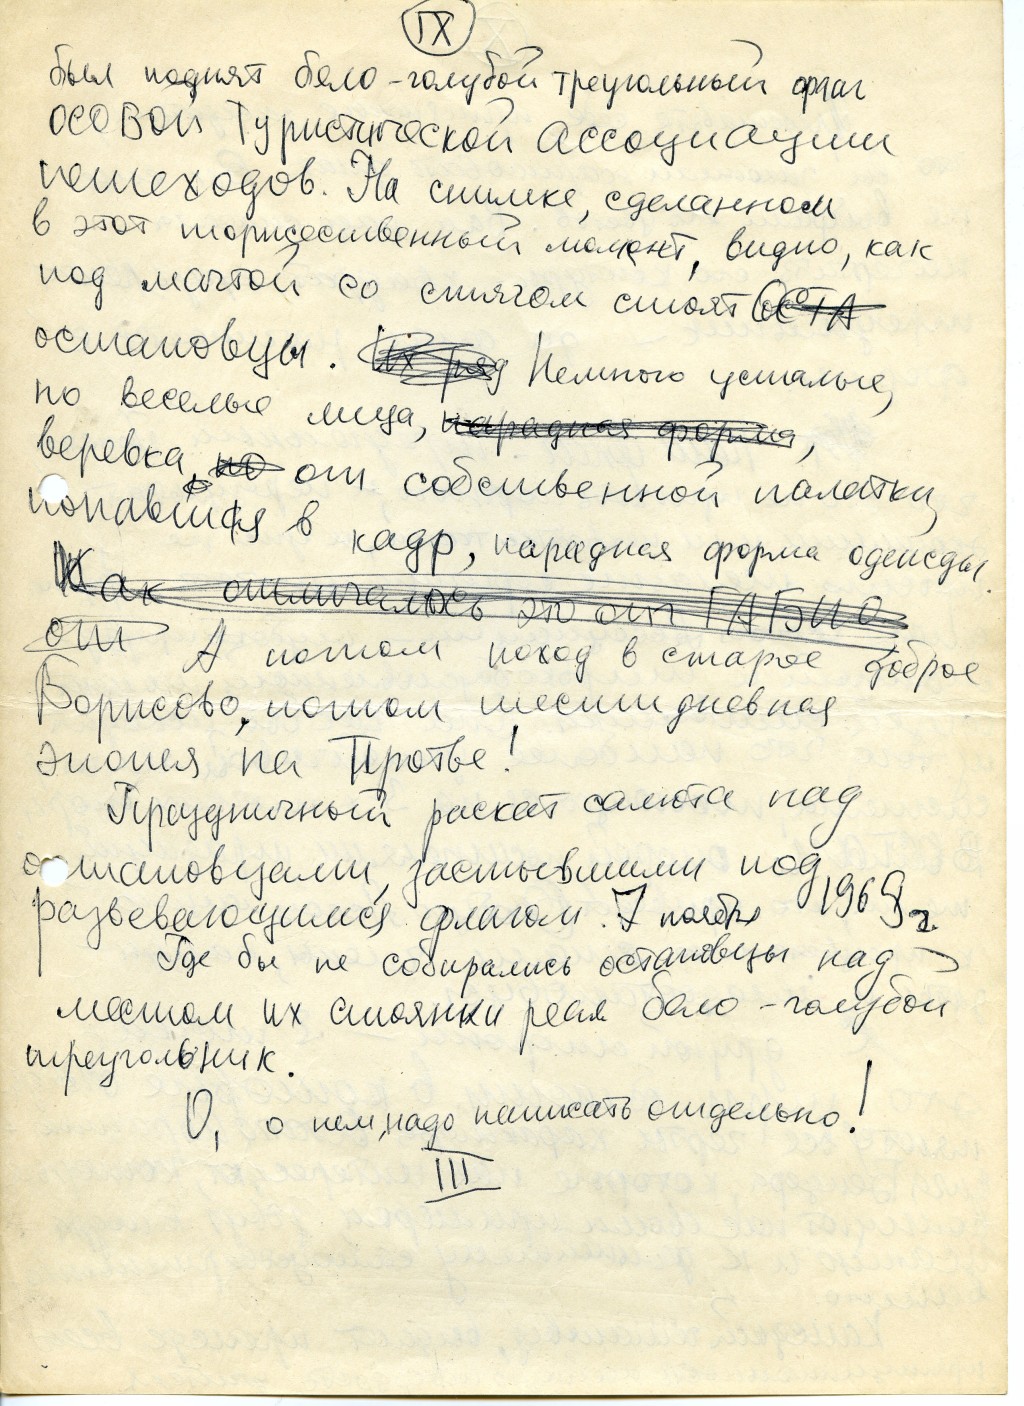 IX
был поднят бело-голубой треугольный флаг
ОСОВОЙ Туристической Ассоциации
пешеходов. На снимке, сделанном
в этот торжественный момент, видно, как
под мачтой со стягом стоят ОСТА
остановцы. Их ряд Немного усталые,
но веселые лица, парадная форма,
веревка, но от собственной палатки,
попавшая в кадр, парадная форма одежды
Как отличалось это от ГАБИО
от А потом поход в старое доброе
Борисово, потом шестидневная
эпопея на Протве!
Праздничный раскат салюта над
остановцами, застывшими под
развевающимся флагом. 7 ноября 1969 г.
Где бы не собирались остановцы над
местом их стоянки реял бело-голубой
треугольник.
О, о нем, надо написать отдельно!
III